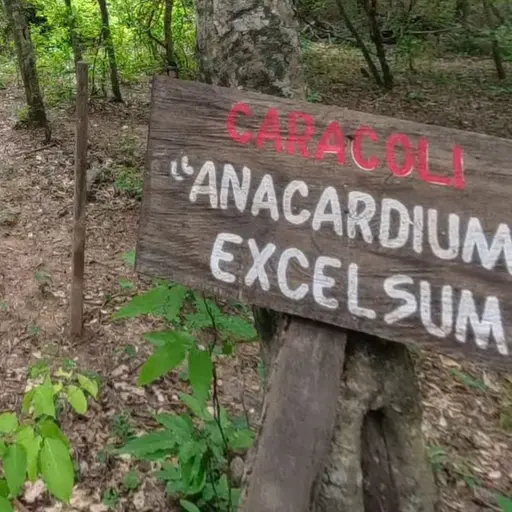 CARACOLI
"ANACARDIUM
EXCELSUM